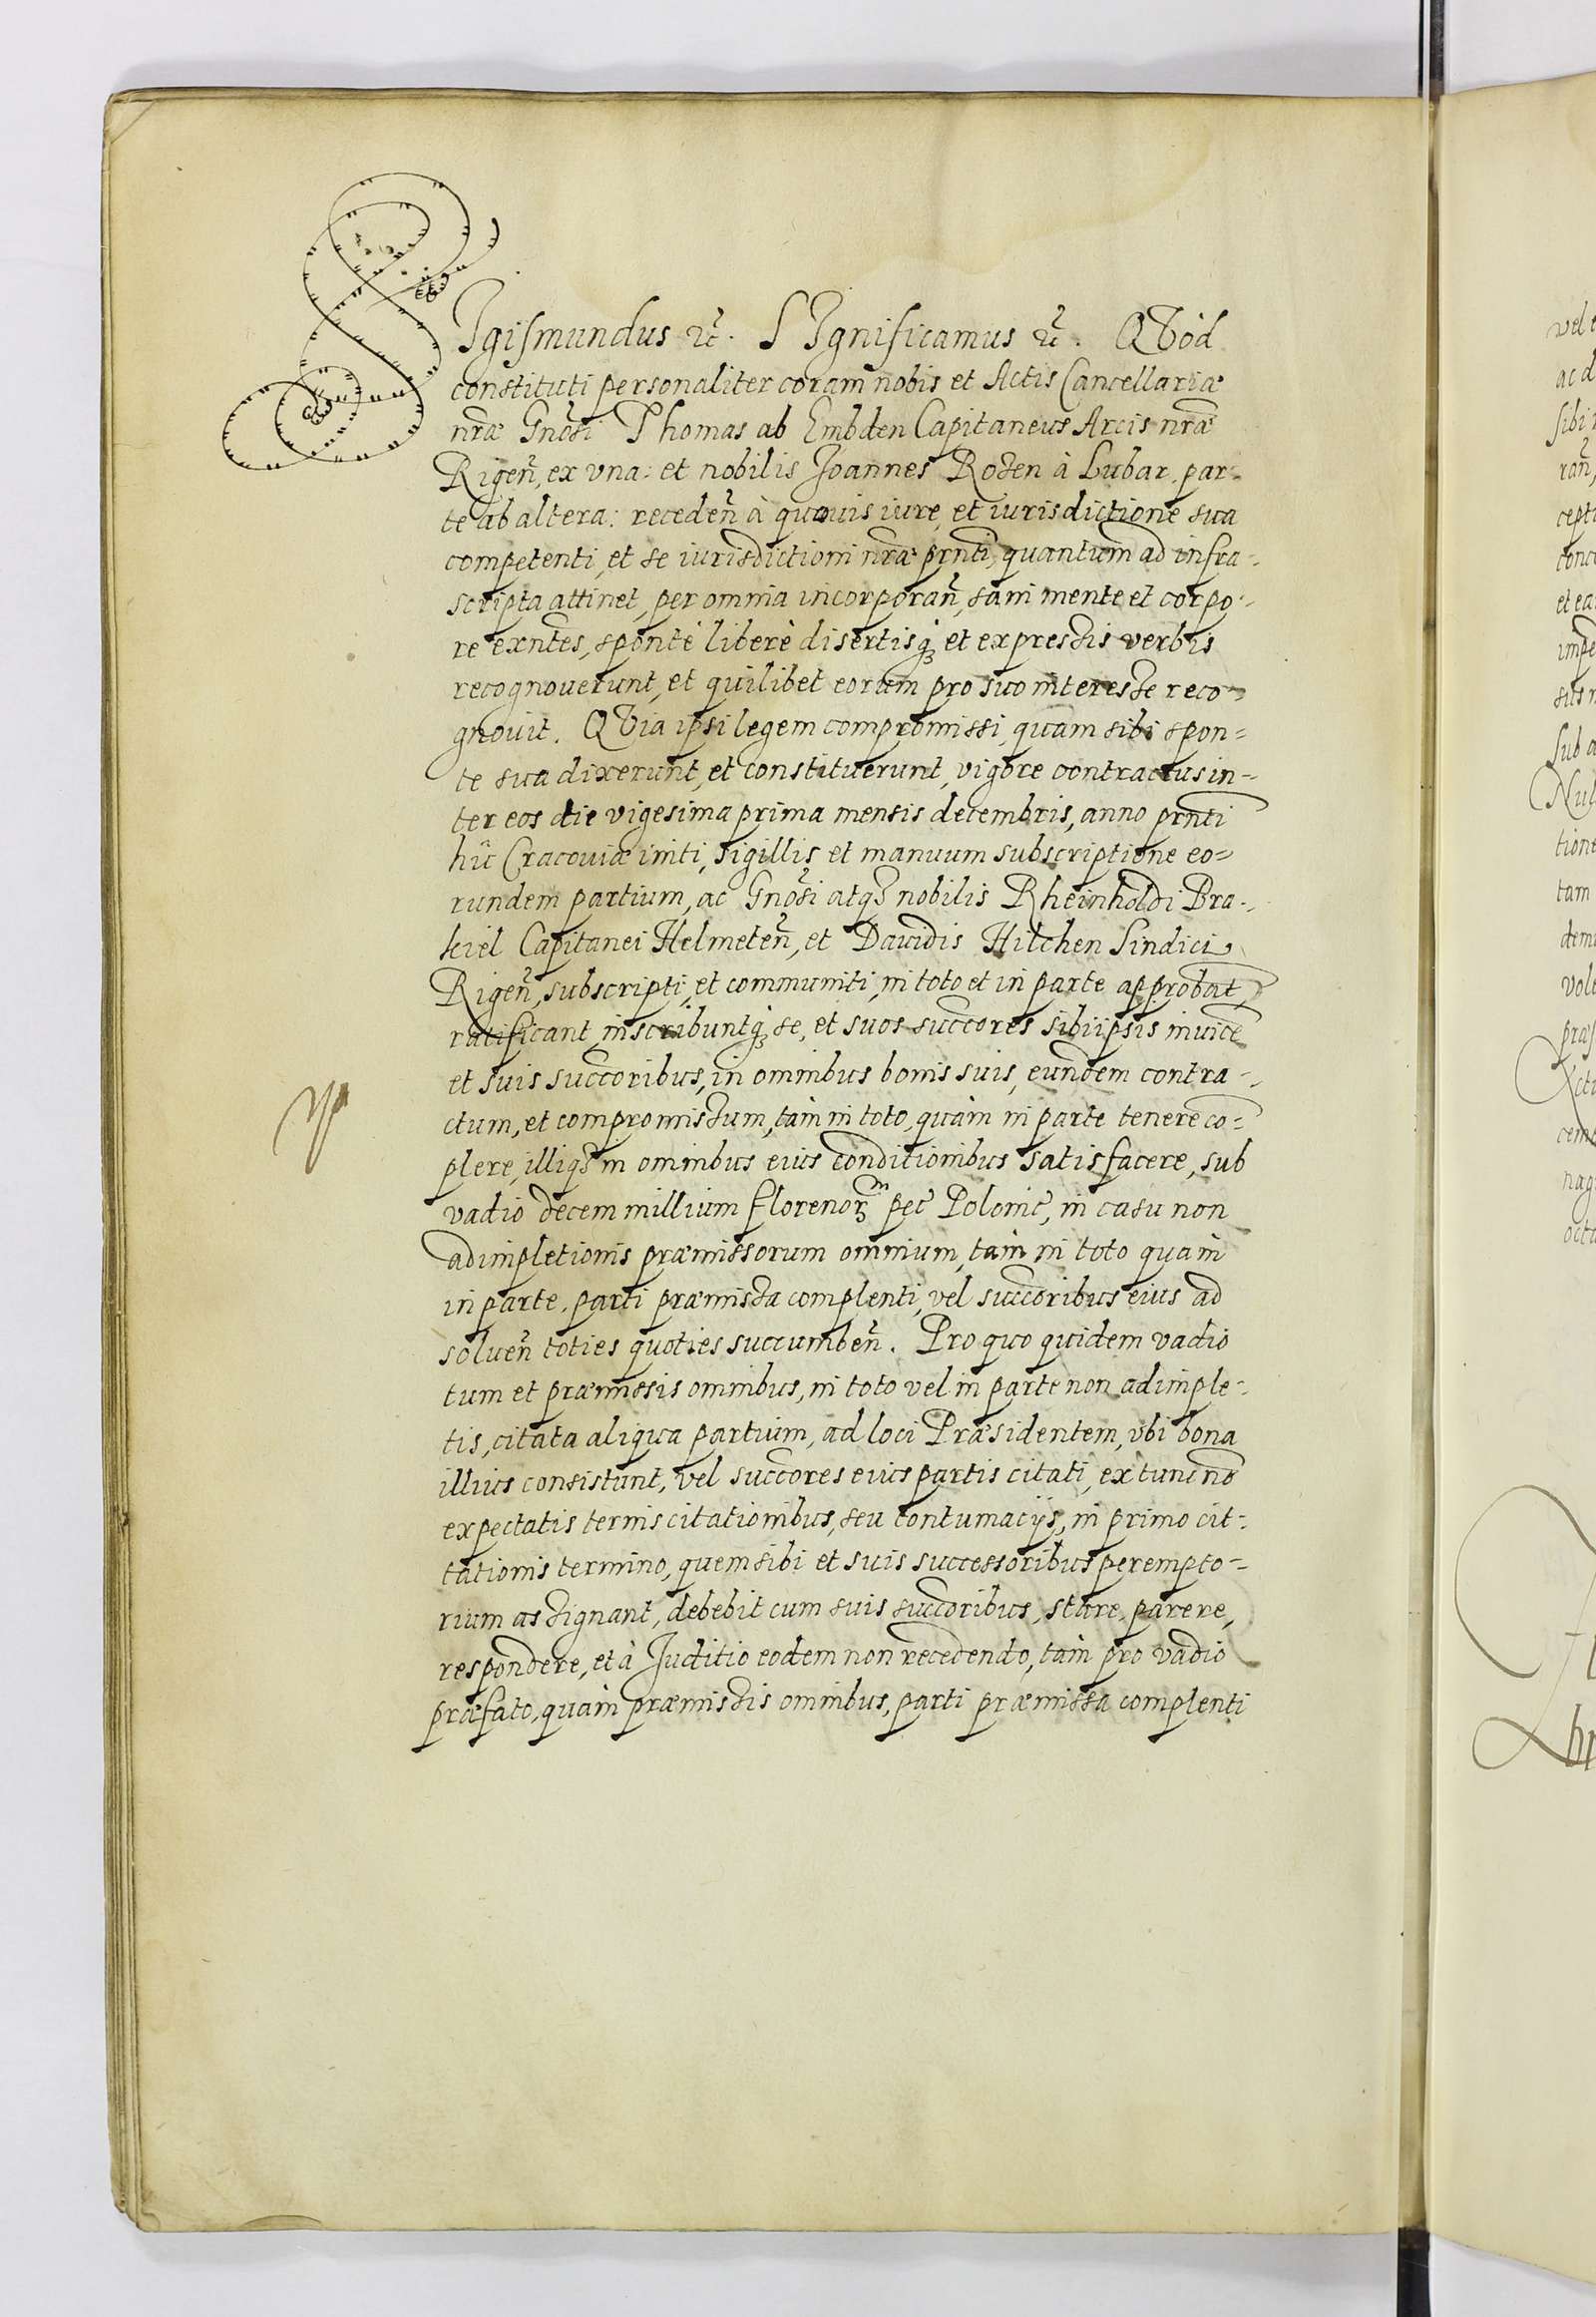 SIgismundus etc̃. SIgnificamus etc̃. QVòd
constituti personaliter coram nobis et Actis Cancellariæ
nr̃æ Gnõsi Thomas ab Embden Capitaneus Arcis nr̃æ
Rigeñ, ex vna: et nobilis Joannes Rosen à Lubar, par-
te ab altera: recedeñ à quouis iure, et iurisdictione sua
competenti, et se iurisdictioni nr̃æ prñti, quantum ad infra-
scripta attinet, per omnia incorporañ, sani mente et corpo-
re exñtes, spontè liberè disertisq₃ et expressis verbis
recognouerunt, et quilibet eorum pro suo interesse reco-
gnouit. QVia ipsi legem compromissi, quam sibi spon-
te sua dixerunt, et constituerunt, vigore contractus in-
ter eos die vigesima prima mensis decembris, anno prñti
hîc Cracouiæ initi, sigillis et manuum subscriptione eo-
rundem partium, ac Gnõsi atq₃ nobilis Rheinholdi Bra-
kiel Capitanei Helmeteñ, et Dauidis Hilchen Sindici
Rigeñ, subscripti, et communiti, in toto et in parte approbãt,
ratificant, inscribuntq₃ se, et suos succores sibiipsis inuicẽ
et suis succoribus, in omnibus bonis suis, eundem contra-
ctum, et compromissum, tàm in toto, quàm in parte tenere cõ-
plere, illiq₃ in omnibus eius conditionibus satisfacere, sub
vadio decem millium florenor̃m pec̃ Polonic̃, in casu non
adimpletionis præmissorum omnium, tàm in toto quàm
in parte, parti præmissa complenti, vel succoribus eius ad
solueñ toties quoties succumbeñ. Pro quo quidem vadio
tum et præmissis omnibus, in toto vel in parte non adimple-
tis, citata aliqua partium, ad loci Præsidentem, vbi bona
illius consistunt, vel succores eius partis citati, ex tunc nõ
expectatis ternis citationibus, seu contumacijs, in primo cit-
tationis termino, quem sibi et suis successoribus perempto-
rium assignant, debebit cum suis succoribus, stare, parere,
respondere, et à Juditio eodem non recedendo, tàm pro vadio
præfato, quàm præmissis omnibus, parti præmissa complenti